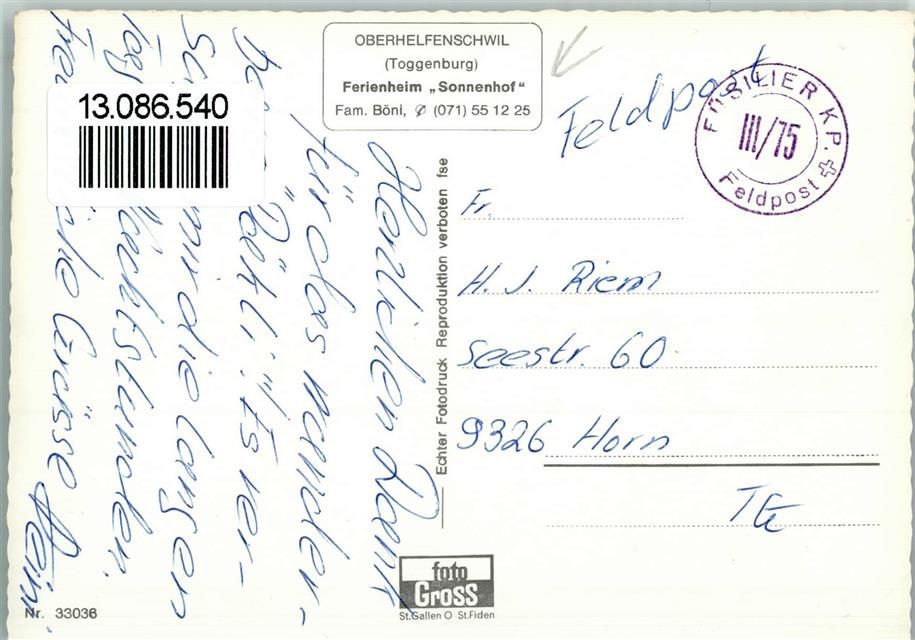 OBERHELFENSCHWIL
(Toggenburg)
Ferienheim „Sonnenhof"
Fam. Böni, ✆ (071) 55 12 25
13.086.540
Herzlichen Dank
für das wunder-
"Bätli". Es ver-
mir die langen
Nachtstunden.
Grüsse
Echter Fotodruck Reproduktion verboten fse
Feldpost
FÜSILIER KP.
III/75
Feldpost
Fr.
H. J. Riem
Seestr. 60
9326 Horn
TG
foto
Gross
St.Gallen O St.Fiden
Nr. 33036